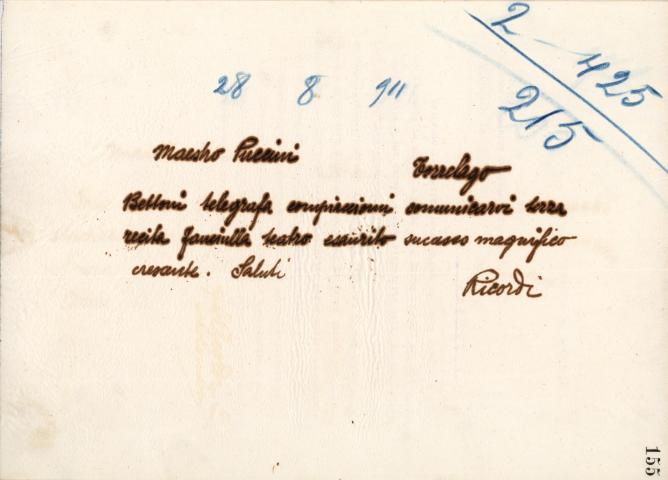 2-425
215
28 8 911
Maestro Puccini Torrelago
Bettoni telegrafa compiaciomi comunicarvi terza
recita fanciulla teatro esaurito sucasso magnifico
cresante. Saluti
Ricordi
155